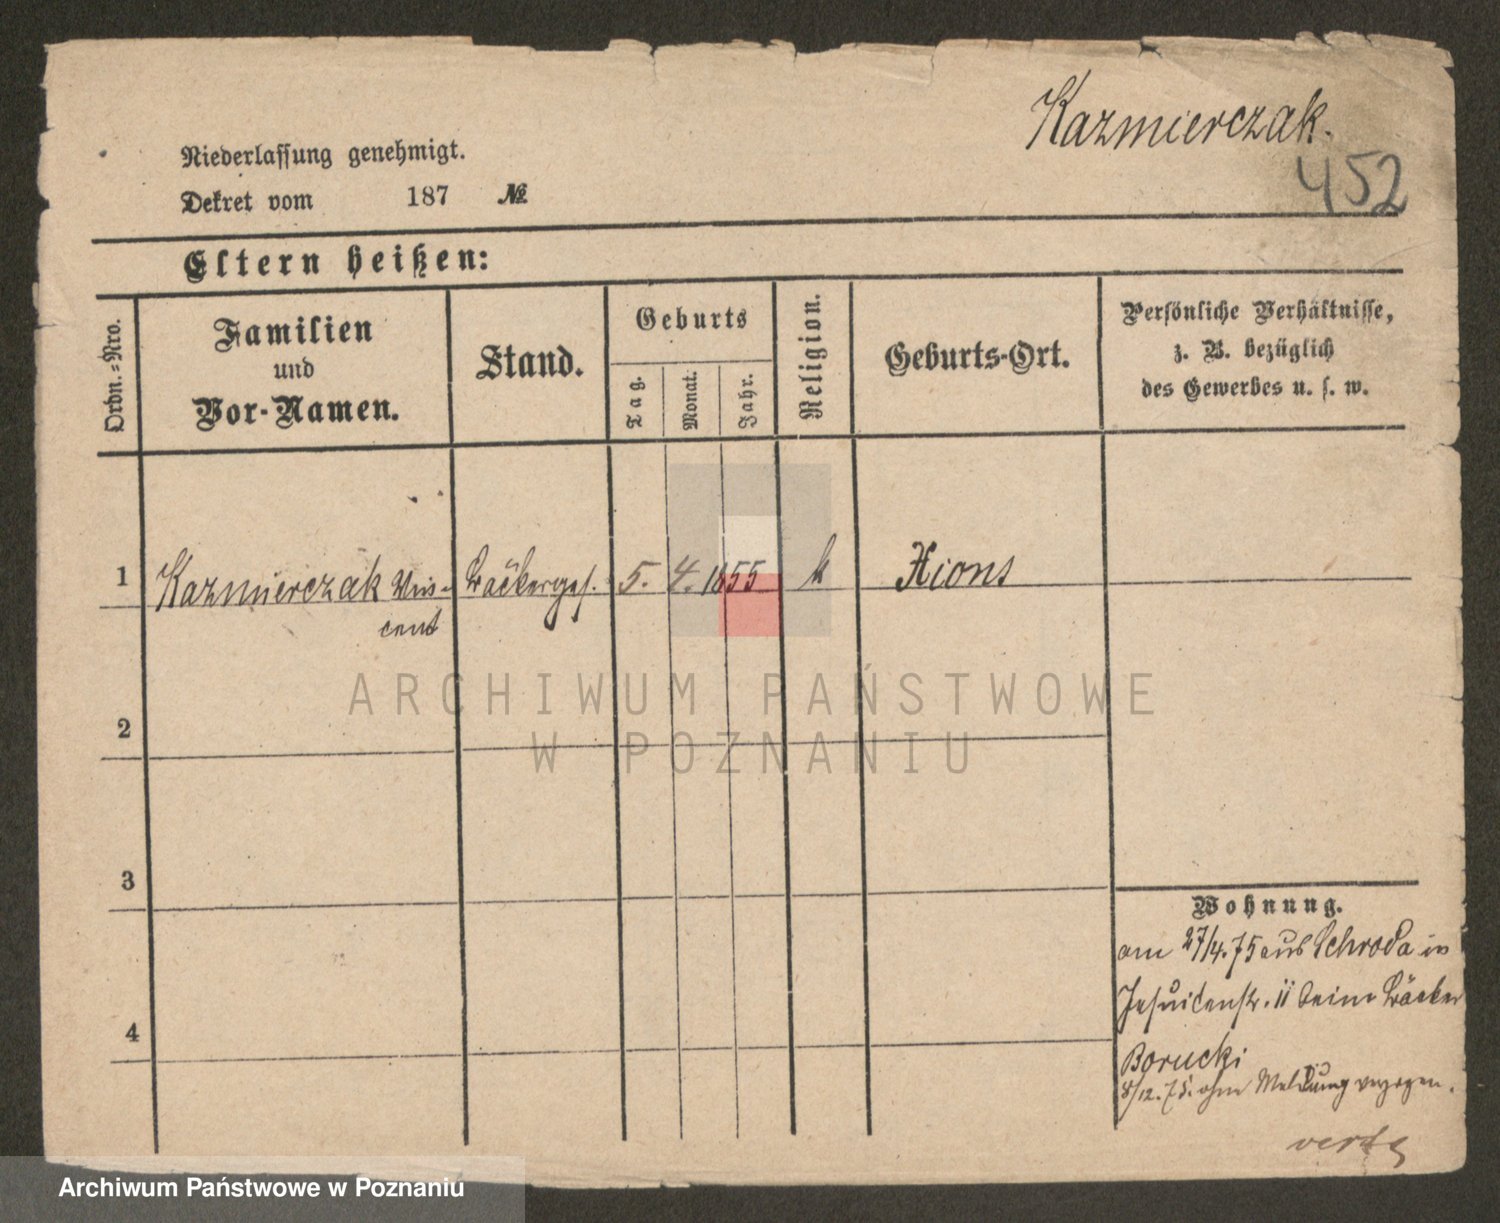 Kazmierczak.
452
Niederlassung genehmigt.
Dekret vom 187 №
Eltern heißen:
Ordn.-Nro.
Familien
und
Vor-Namen.
Stand.
Geburts
Tag.
Monat.
Jahr.
Religion.
Geburts-Ort.
Persönliche Verhältnisse,
z. B. bezüglich
des Gewerbes u. s. w.
1 Kazmierczak Vin- Bäckerges. 5. 4. 1855 k Xions
cent
2
3
4
Wohnung.
am 27/4.75 aus Schroda in
Jesuitenstr. 11 beim Bäcker
Borucki
8/12.75. ohne Meldung verzogen.
ARCHIWUM PAŃSTWOWE
W POZNANIU
Archiwum Państwowe w Poznaniu